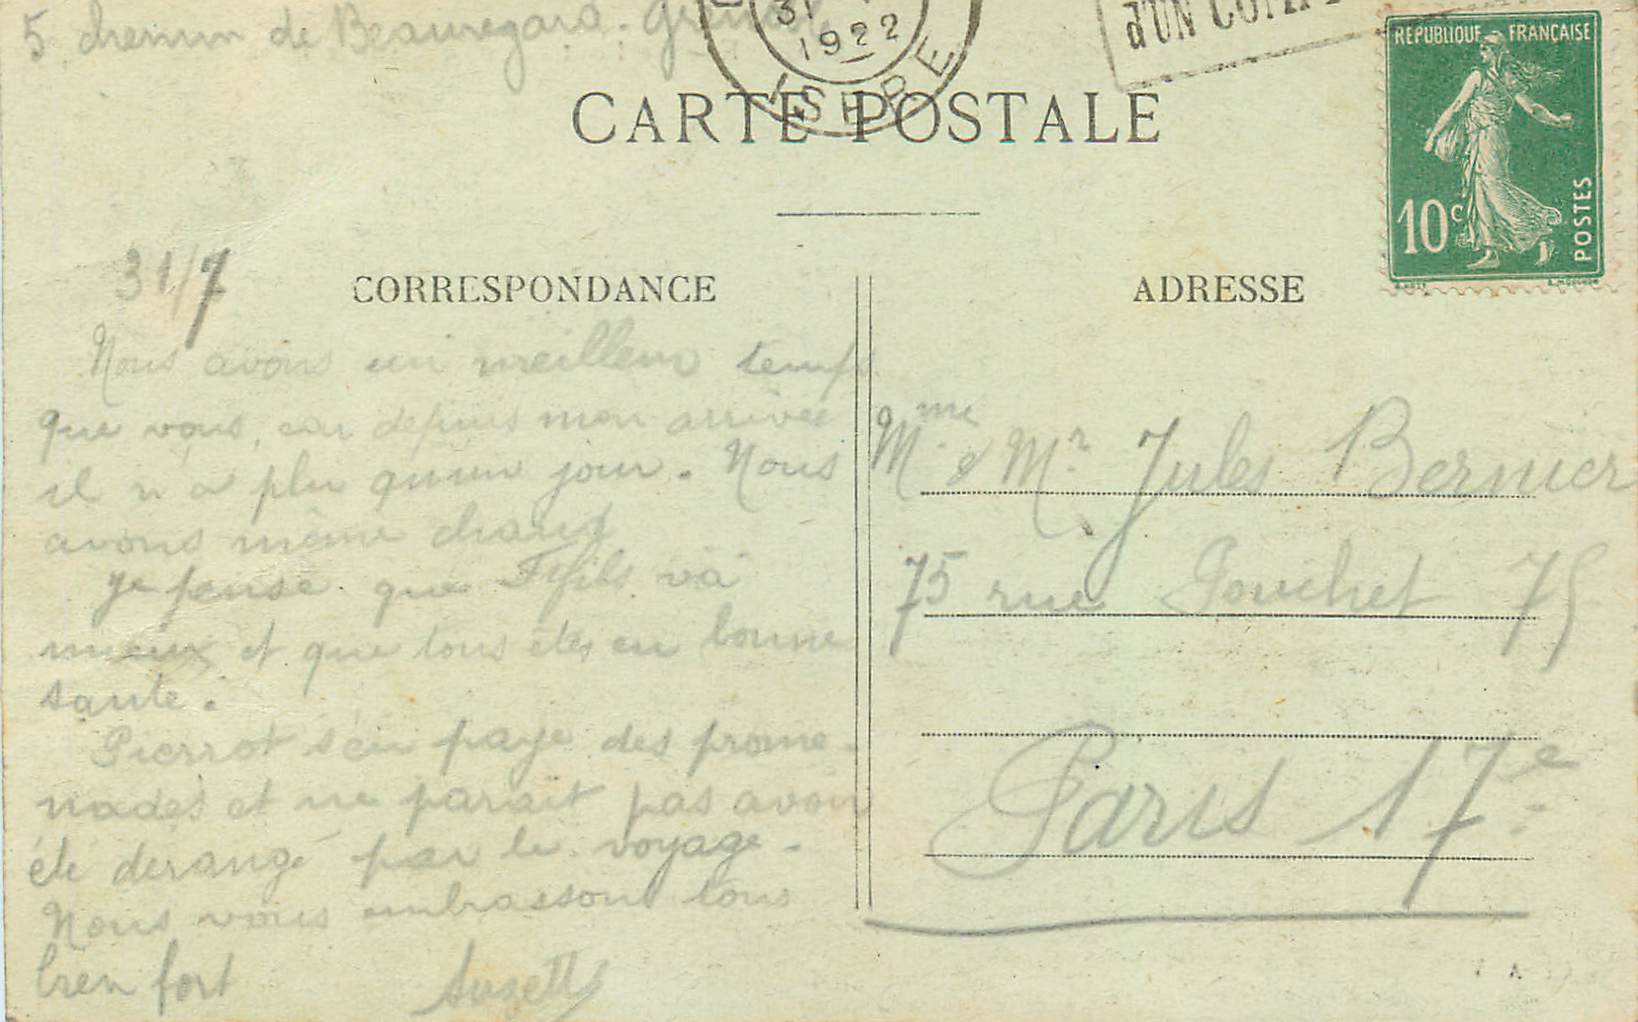 5 chemin de Beauregard.
31
1922
ISERE
d'UN COMP
CARTE POSTALE
REPUBLIQUE FRANÇAISE
10c
POSTES
31/7
CORRESPONDANCE
ADRESSE
Nous avons un meilleur temps
que vous, car depuis mon arrivée
il n'a plu qu'un jour. Nous
avons même chaud
Je pense que fils va
mieux et que tous êtes en bonne
santé.
Pierrot s'en paye des prome-
nades et ne parait pas avoir
été derangé par le voyage.
Nous vous embrassons tous
bien fort Suzette
Mme & Mr. Jules Bernier
75 rue Pouchet 75
Paris 17e